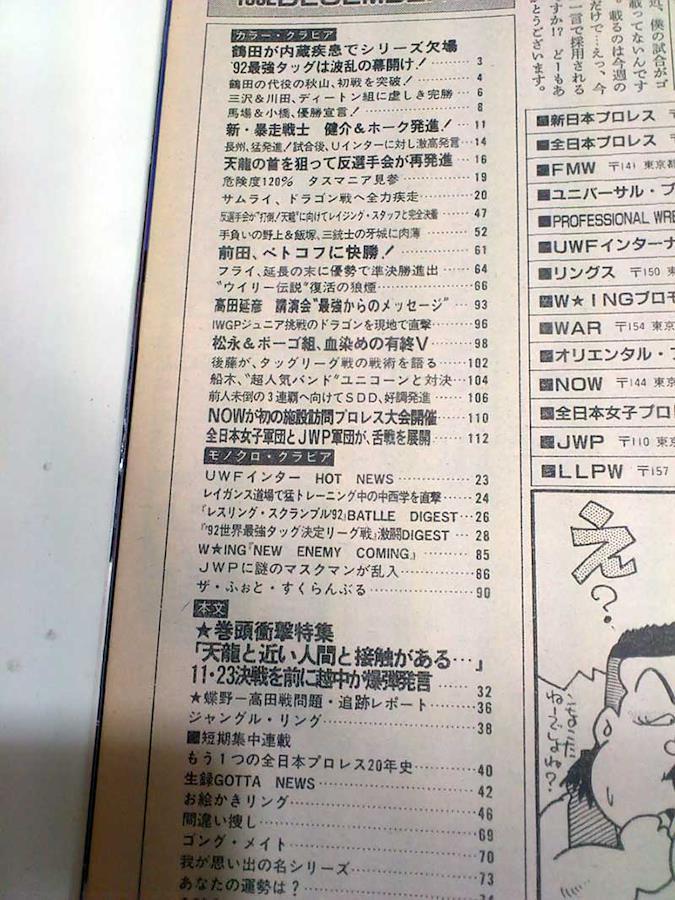 カラー・グラビア
鶴田が内蔵疾患でシリーズ欠場
'92最強タッグは波乱の幕開け! 3
鶴田の代役の秋山、初戦を突破! 4
三沢&川田、ディートン組に虚しき完勝 6
馬場&小橋、優勝宣言! 8
新・暴走戦士 健介&ホーク発進! 11
長州、猛発進!試合後、Uインターに対し激高発言 14
天龍の首を狙って反選手会が再発進 16
危険度120% タスマニア見参 19
サムライ、ドラゴン戦へ全力疾走 20
反選手会が"打倒!天龍"に向けてレイジング・スタッフと完全決着 47
手負いの野上&飯塚、三銃士の牙城に肉薄 52
前田、ペトコフに快勝! 61
フライ、延長の末に優勢で準決勝進出 64
"ウイリー伝説"復活の狼煙 66
高田延彦 講演会"最強からのメッセージ" 93
IWGPジュニア挑戦のドラゴンを現地で直撃 96
松永&ポーゴ組、血染めの有終V 98
後藤が、タッグリーグ戦の戦術を語る 102
船木、"超人気バンド"ユニコーンと対決 104
前人未倒の3連覇へ向けてSDD、好調発進 106
NOWが初の施設訪問プロレス大会開催 110
全日本女子軍団とJWP軍団が、舌戦を展開 112
モノクロ・グラビア
UWFインター HOT NEWS 23
レイガンス道場で猛トレーニング中の中西学を直撃 24
『レスリング・スクランブル'92』BATLLE DIGEST 26
『'92世界最強タッグ決定リーグ戦』激闘DIGEST 28
W★ING『NEW ENEMY COMING』 85
JWPに謎のマスクマンが乱入 86
ザ・ふぉと・すくらんぶる 90
本文
★巻頭衝撃特集
「天龍と近い人間と接触がある…」
11・23決戦を前に越中が爆弾発言 32
★蝶野―高田戦問題・追跡レポート 36
ジャングル・リング 38
短期集中連載
もう1つの全日本プロレス20年史 40
生録GOTTA NEWS 42
お絵かきリング 46
間違い捜し 69
ゴング・メイト 70
我が思い出の名シリーズ 73
あなたの運勢は?
近、僕の試合がゴ
載ってないんです
載るのは今週の
だけで…えっ、今
一言で採用される
すか!? どーもあ
とうございます。
■新日本プロレス 〒
■全日本プロレス 〒
■FMW 〒141 東京都
■ユニバーサル・プ
■PROFESSIONAL WRE
■UWFインターナ
■リングス 〒150 東
■W★INGプロモ
■WAR 〒154 東京
■オリエンタル・プ
■NOW 〒144 東京
■全日本女子プロ
■JWP 〒110 東京
■LLPW 〒157
え?